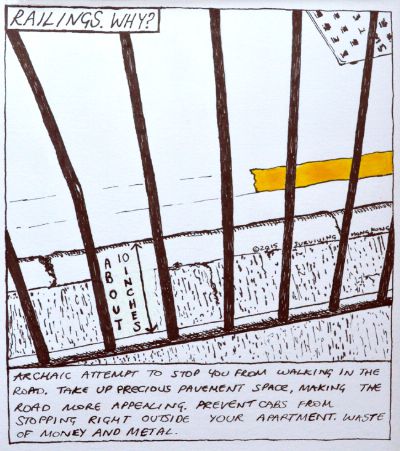 RAILINGS. WHY?
©2015 SURVIVING HONG KONG
ABOUT
10 INCHES
ARCHAIC ATTEMPT TO STOP YOU FROM WALKING IN THE
ROAD. TAKE UP PRECIOUS PAVEMENT SPACE, MAKING THE
ROAD MORE APPEALING. PREVENT CABS FROM
STOPPING RIGHT OUTSIDE YOUR APARTMENT. WASTE
OF MONEY AND METAL.